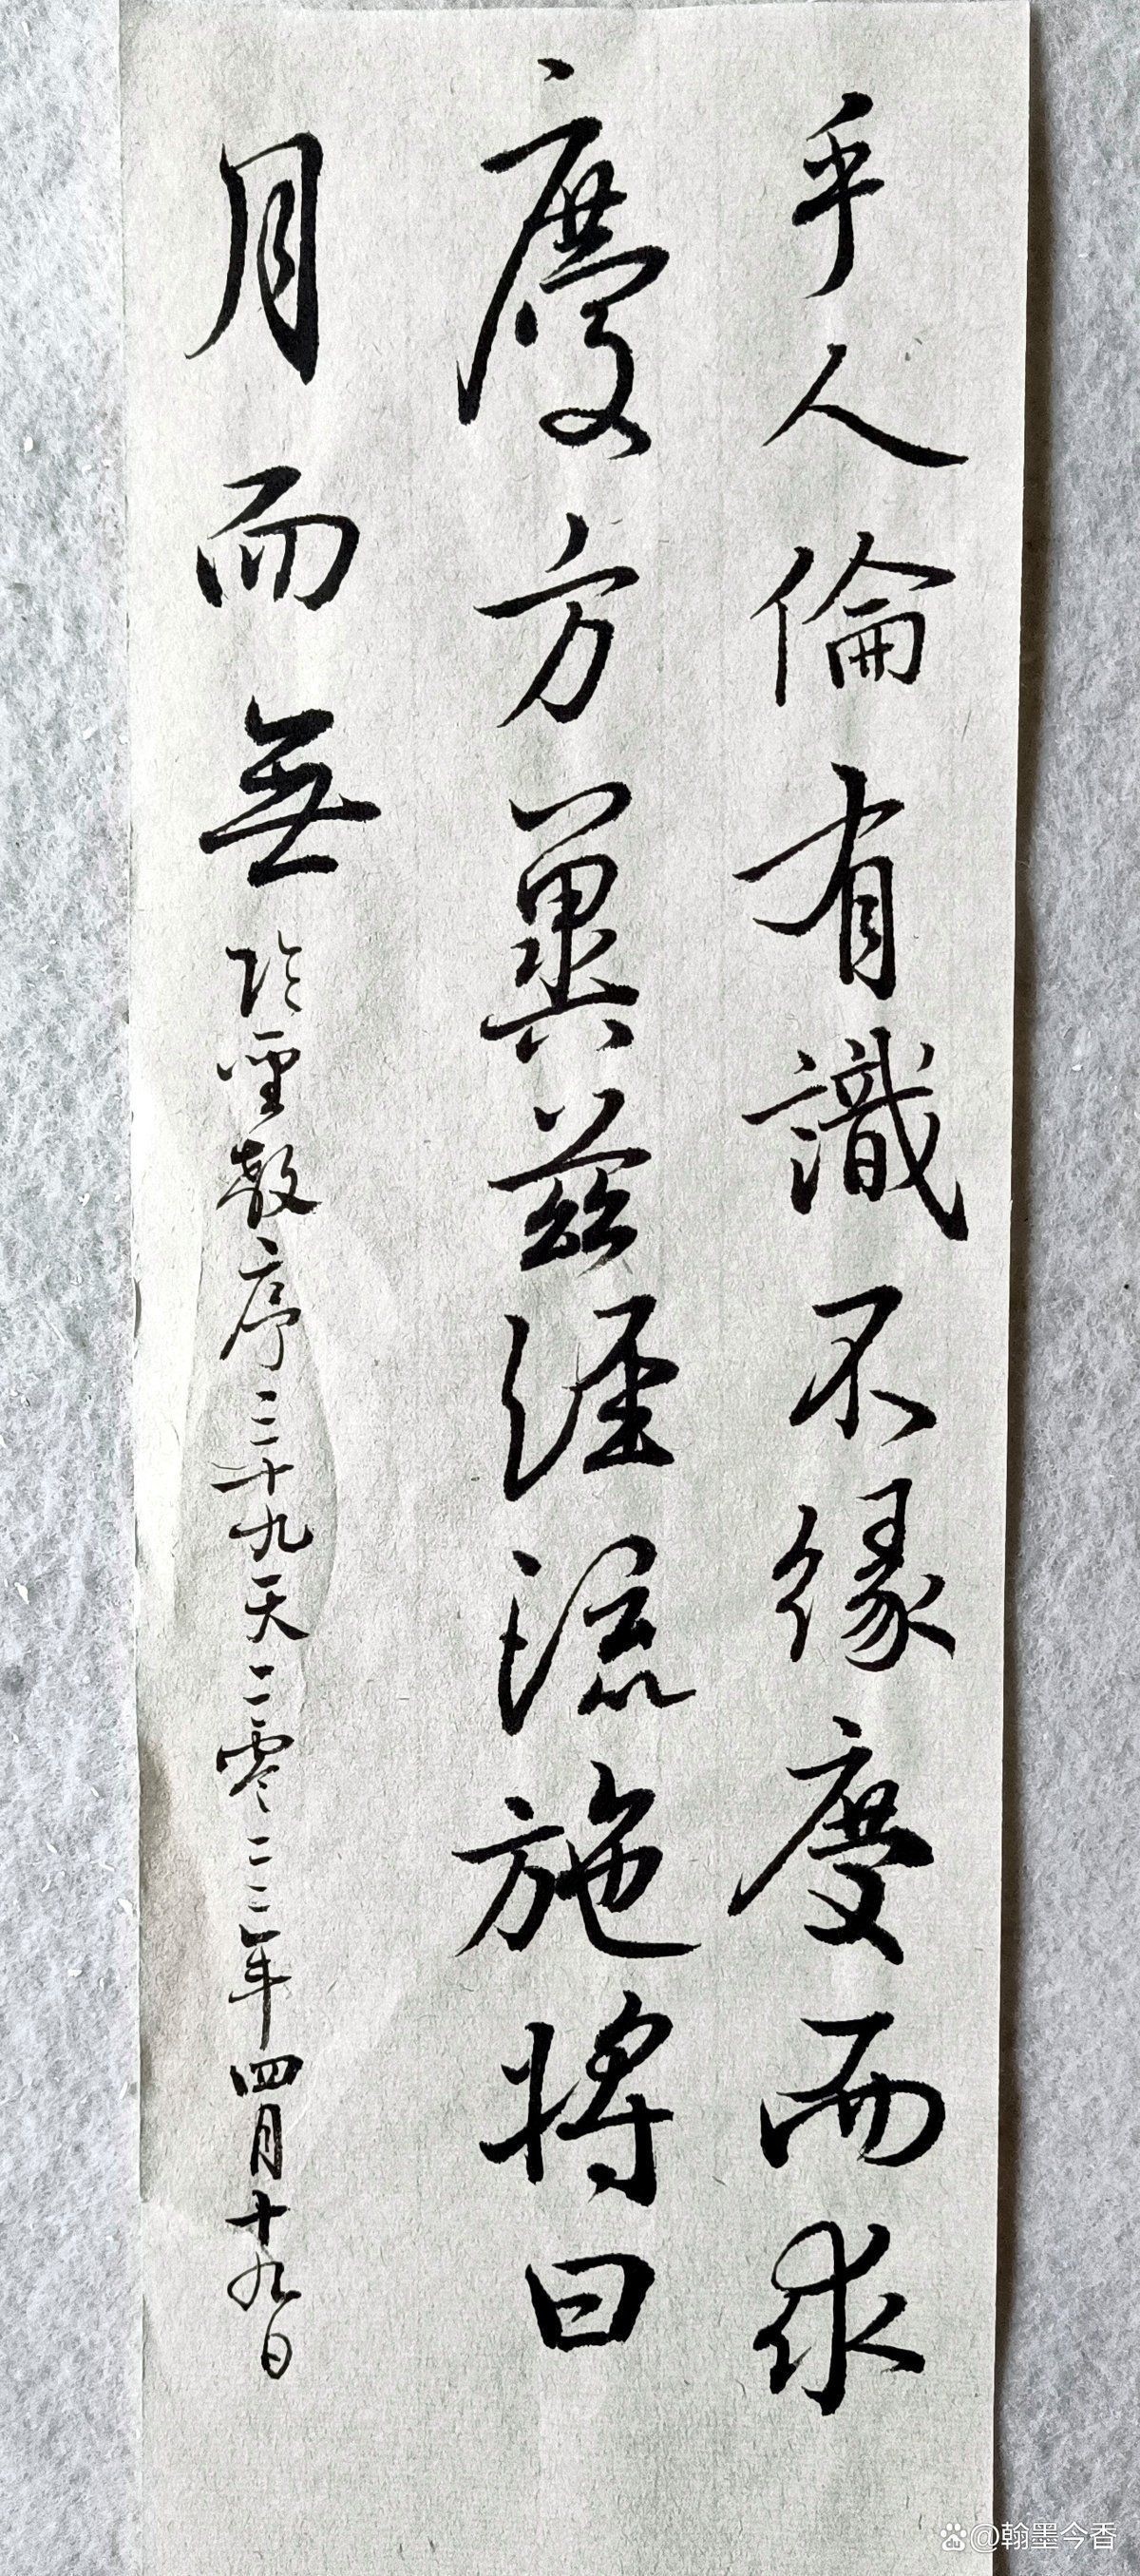 乎人倫有識不緣慶而求
慶方冀茲經流施將日
月而無 临聖教序三十九天二零二三年四月十九日
@翰墨今香